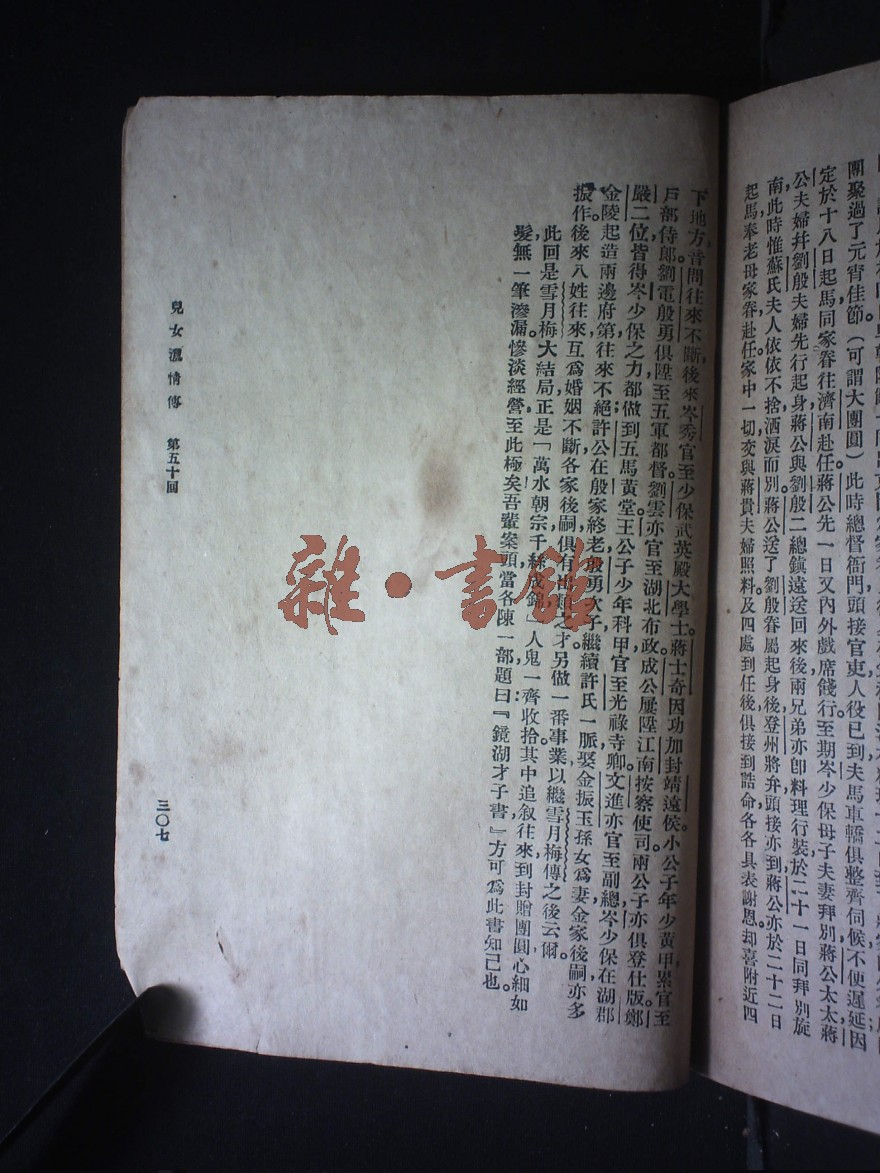 團聚過了元宵佳節(可謂大團圓)此時總督衙門頭接官吏人役已到夫馬車轎俱整齊伺候不便遲延因
定於十八日起馬同家眷往濟南赴任蔣公先一日又內外戲席餞行至期岑少保母子夫妻拜別蔣公太太蔣
公夫婦幷劉殷夫婦先行起身蔣公與劉殷二總鎮遠送回來後兩兄弟亦卽料理行裝於二十一日同拜別旋
南此時惟蘇氏夫人依依不捨洒淚而別蔣公送了劉殷眷屬起身後登州將弁頭接亦到蔣公亦於二十二日
起馬奉老母家眷赴任家中一切交與蔣貴夫婦照料。及四處到任後俱接到誥命各各具表謝恩却喜附近四
下地方音問往來不斷後來岑秀官至少保武英殿大學士。蔣士奇因功加封靖遠侯。小公子年少黃甲累官至
戶部侍郎。劉電殷勇俱陞至五軍都督劉雲亦官至湖北布政成公屢陞江南按察使司。兩公子亦俱登仕版。鄭
嚴二位皆得岑少保之力都做到五馬黃堂王公子少年科甲官至光祿寺卿文進亦官至副總岑少保在湖郡
金陵起造兩邊府第往來不絕許公在殷家終老殷勇次子繼續許氏一脈娶金振玉孫女爲妻金家後嗣亦多
振作。後來八姓往來互爲婚姻不斷各家後嗣俱有出類之才另做一番事業以繼雪月梅傳之後云爾。
此回是雪月梅大結局正是「萬水朝宗千絲成錦」人鬼一齊收拾其中追叙往來到封贈團圓心細如
髮無一筆滲漏慘淡經營至此極矣吾輩案頭當各陳一部題曰:『鏡湖才子書』方可爲此書知己也。
兒女濃情傳 第五十回
三〇七
雜·書館